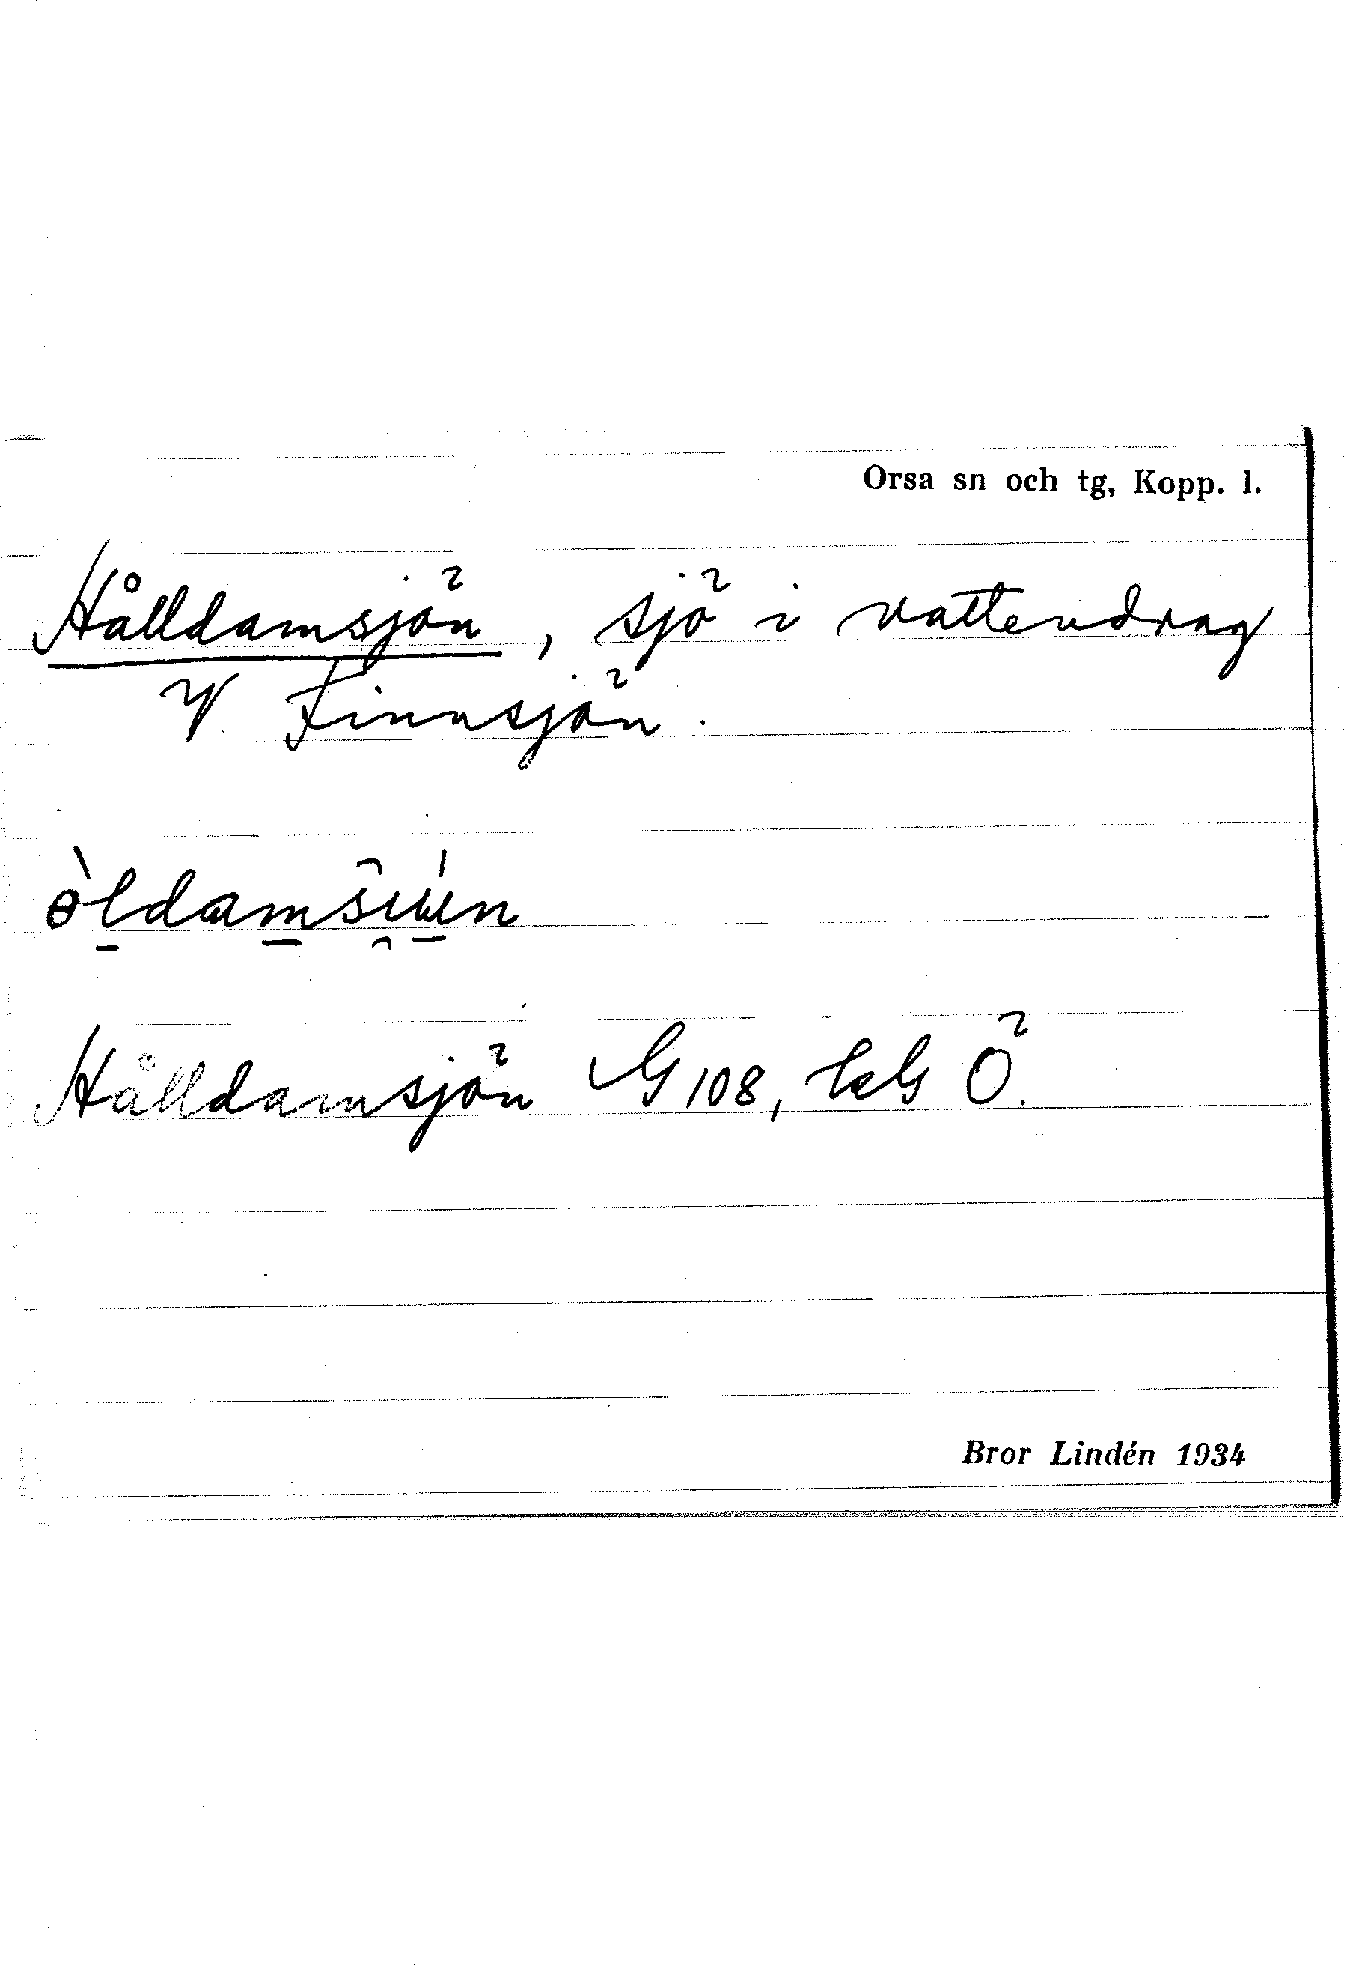 Orsa sn och tg, Kopp. l.
Hålldamsjön, sjö i vattendrag
V Finnsjön.
Hålldamsjön G 108, LeG Ö.
Bror Lindén 1934